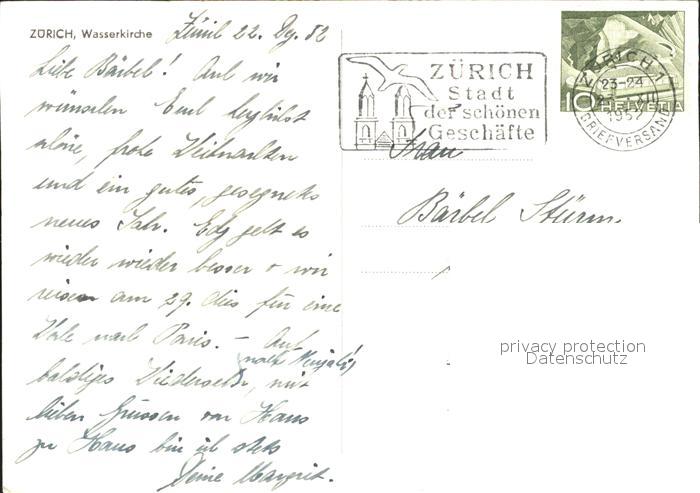 ZÜRICH, Wasserkirche
Zürich 22. Dez. 52
Liebe Bärbel! Auch wir
wünschen Euch
schöne, frohe Weihnachten
und ein gutes, gesegnetes
neues Jahr. geht es
wieder wieder besser + wir
reisen am 29. dies für eine
nach Paris. – Auf
baldiges Wiedersehen, mit
nach Neujahr!
lieben Grüssen von Haus
zu Haus bin ich stets
Deine Margrit.
ZÜRICH
Stadt
der schönen
Geschäfte
ZÜRICH 1
23-24
1952
BRIEFVERSAND
10 HELVETIA
Frau
Bärbel Stürm.
privacy protection
Datenschutz